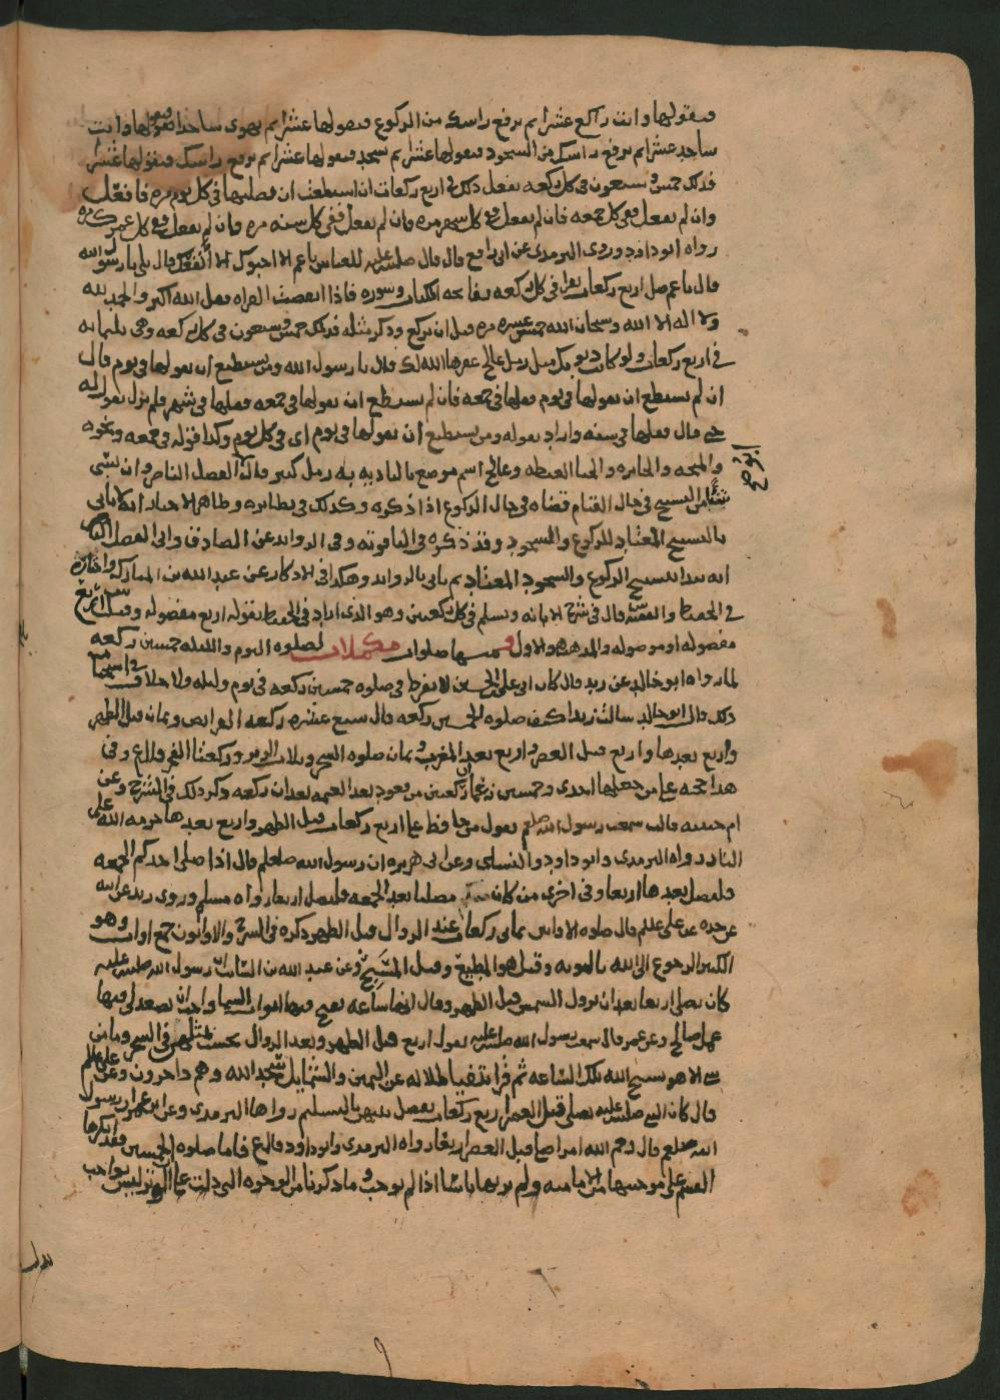 فتقولها وانت راكع عشرا ثم ترفع راسك من الركوع فتقولها عشرا ثم تهوي ساجدا فتقولها وانت
ساجد عشرا ثم ترفع راسك من السجود فتقولها عشرا ثم تسجد فتقولها عشرا ثم ترفع راسك فتقولها عشرا
فذلك خمس وسبعون في كل ركعه تفعل ذلك في اربع ركعات ان استطعت ان تصليها في كل يوم مره فافعل
وان لم تفعل ففي كل جمعه فان لم تفعل ففي كل شهر مره فان لم تفعل ففي كل سنه مره فان لم تفعل ففي كل عمرك مره
رواه ابو داود وروى الترمذي عن ابي رافع قال قال صلى الله عليه للعباس يا عم الا احبوك الا انفعك قال بلى يا رسول الله
قال يا عم صل اربع ركعات تقرا في كل ركعه بفاتحه الكتاب وسوره فاذا انقضت القراه فقل الله اكبر والحمد لله
ولا اله الا الله وسبحان الله خمس عشره مره قبل ان تركع وذكر مثله فذلك خمس وسبعون في كل ركعه وهي ثلثمايه
في اربع ركعات ولو كانت ذنوبك مثل رمل عالج غفرها الله لك قال يا رسول الله ومن يستطيع ان يقولها في يوم قال
ان لم تستطع ان تقولها في يوم فقلها في جمعه فان لم تستطع ان تقولها في جمعه فقلها في شهر فلم يزل يقول له
حتى قال فقلها في سنه واراد بقوله ومن يستطيع ان يقولها في يوم اي في كل يوم وكذا قوله في جمعه ونحوه
والمنحه والجايزه والحبا العطيه وعالج اسم موضع بالباديه به رمل كثير قال الفصل الناصر وان نسي
شيا من التسبيح في حال القيام قضاه في حال الركوع اذا ذكره وكذلك في نظايره وظاهر الاخبار انه لا ياتي
بالتسبيح المعتاد للركوع والسجود وقد ذكره في الياقوته وفي الزوايد عن الصادق والى الفصل الناصر
انه يبدا بتسبيح الركوع والسجود المعتاد ثم ياتي بالزوايد وهكذا في الاذكار عن عبد الله بن المبارك واختاره
في الحفيظ والفقيه قال في شرح الابانه ويسلم في كل ركعتين وهو الذي اراد في الحفيظ بقوله اربع مفصوله وقيل
مفصوله او موصوله والمذهب هو الاول ومنها صلوات مكملات لصلوه اليوم والليله خمسين ركعه
لما رواه ابو خالد عن زيد قال كان ابي علي بن الحسين لا يفرط في صلوه خمسين ركعه في يوم وليله ولا خلاف في استحباب
ذلك قال ابو خالد سالت زيدا كيف صلوه الخمسين ركعه قال سبع عشره ركعه الفرايض وثمان قبل الظهر
واربع بعدها واربع قبل العصر واربع بعد المغرب وثمان صلوه السحر وثلاث الوتر وركعتا الفجر قال ع وفي
هذا حجه على من جعلها احدى وخمسين بركعتين من قعود بعد العتمه تعدان ركعه وذكر ذلك في الشرح وعن
ام حبيبه قالت سمعت رسول الله صلعم يقول من حافظ على اربع ركعات قبل الظهر واربع بعدها حرمه الله على
النار رواه الترمذي وابو داود والنسائي وعن ابي هريره ان رسول الله صلعم قال اذا صلى احدكم الجمعه
فليصل بعدها اربعا وفي اخرى من كان منكم مصليا بعد الجمعه فليصل اربعا رواه مسلم وروى زيد عن ابيه
عن جده عن علي علم قال صلوه الاوابين ثماني ركعات عند الزوال قبل الظهر ذكره في الشرح والاوابون جمع اواب وهو
الكثير الرجوع الى الله بالتوبه وقيل هو المطيع وقيل المسبح وعن عبد الله بن السائب ان رسول الله صلى الله عليه
كان يصلي اربعا بعد ان تزول الشمس قبل الظهر وقال انها ساعه تفتح فيها ابواب السما واحب ان يصعد لي فيها
عمل صالح وعن عمر قال سمعت رسول الله صلى الله عليه يقول اربع قبل الظهر وبعد الزوال تحسب بمثلهن في السحر وما من
شي الا هو يسبح الله تلك الساعه ثم قرا يتفيا ظلاله عن اليمين والشمايل سجدا لله وهم داخرون وعن علي علم
قال كان النبي صلى الله عليه يصلي قبل العصر اربع ركعات يفصل بينهن بالتسليم رواها الترمذي وعن ابن عمر ان رسول
الله صلعم قال رحم الله امرا صلى قبل العصر اربعا رواه الترمذي وابو داود قال ع فاما صلوه الخمسين فقد انكرها
القسم على موجبيها من الاماميه ولم ير بها باسا اذا لم توجب وما ذكرنا من الوجوه التي دلت على ان الوتر ليس بواجب